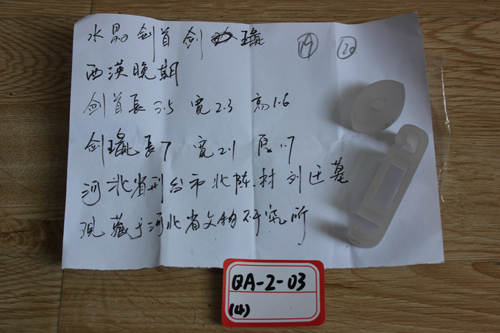 水晶剑首剑璏 ⑲ ⑳
西汉晚期
剑首长3.5 宽2.3 高1.6
剑璏长7 宽2.1 厚1.7
河北省邢台市北陈村刘迁墓
现藏于河北省文物研究所
QA-2-03
(4)